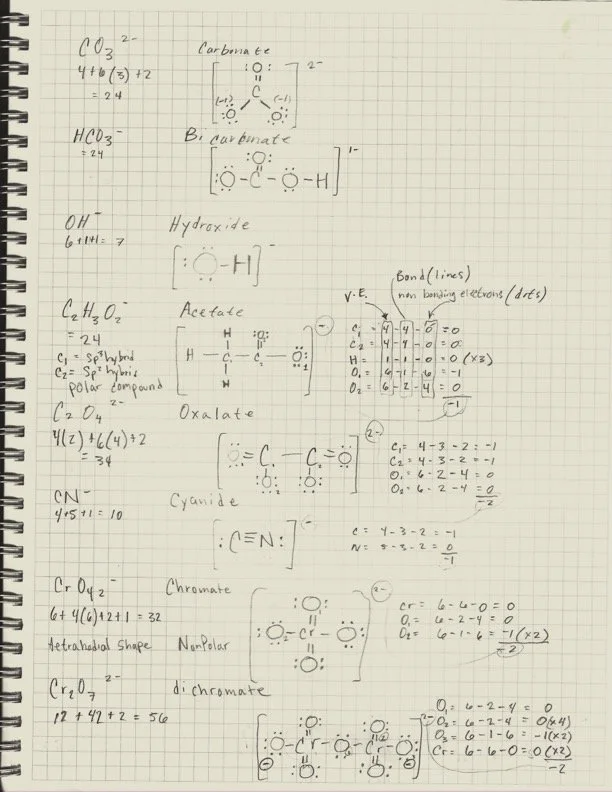 CO3 2- Carbonate
4+6(3)+2
= 24
[ :O: = C (-1) :O: (-1) :O: ] 2-
HCO3 - Bicarbonate
= 24
[ :O - C - O - H :O: ] 1-
OH - Hydroxide
6+1+1= 7
[ :O - H ] -
Bond (lines)
V.E. non bonding electrons (dots)
C2H3O2 - Acetate
= 24
C1 = Sp3 hybrid
C2 = Sp2 hybrid
polar compound
[ H - C1 - C2 - O1 H H O2 ] -
C1 = 4 - 4 - 0 = 0
C2 = 4 - 4 - 0 = 0
H = 1 - 1 - 0 = 0 (x3)
O1 = 6 - 1 - 6 = -1
O2 = 6 - 2 - 4 = 0
-1
C2O4 2- Oxalate
4(2) + 6(4) + 2
= 34
[ O = C1 - C2 = O :O: :O: ] 2-
C1 = 4 - 3 - 2 = -1
C2 = 4 - 3 - 2 = -1
O1 = 6 - 2 - 4 = 0
O2 = 6 - 2 - 4 = 0
-2
CN - Cyanide
4+5+1 = 10
[ :C≡N: ] -
C = 4 - 3 - 2 = -1
N = 5 - 3 - 2 = 0
-1
CrO42 - Chromate
6+4(6)+2+1 = 32
tetrahedral shape NonPolar
[ :O2 - Cr - O: :O: :O: ] 2-
Cr = 6 - 6 - 0 = 0
O1 = 6 - 2 - 4 = 0
O2 = 6 - 1 - 6 = -1 (x2)
-2
Cr2O7 2- dichromate
12 + 42 + 2 = 56
[ :O - Cr - O - Cr - O: :O: :O: :O: :O: ] 2-
O1 = 6 - 2 - 4 = 0
O2 = 6 - 2 - 4 = 0(x4)
O3 = 6 - 1 - 6 = -1(x2)
Cr = 6 - 6 - 0 = 0 (x2)
-2